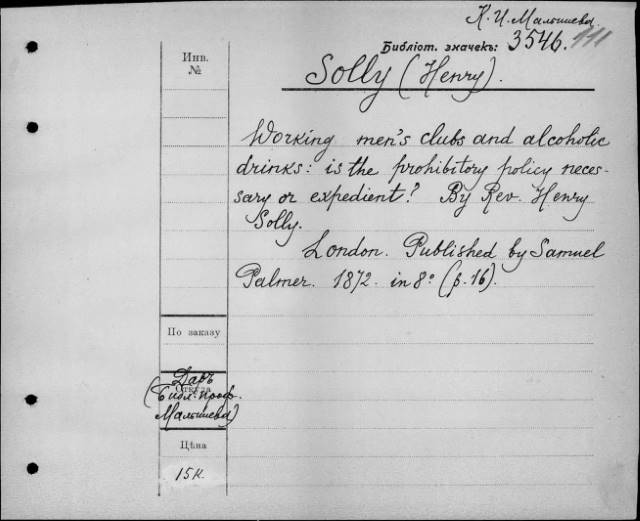 К. И. Малышева.
Библіот. значекъ: 3546. 111
Инв.
№
Solly (Henry).
Working men's clubs and alcoholic
drinks: is the prohibitory policy neces-
sary or expedient? By Rev. Henry
Solly.
London. Published by Samuel
Palmer. 1872. in 8° (p. 16).
По заказу
Даръ
Откуда
(Библ. проф.
Малышева)
Цѣна
15 к.